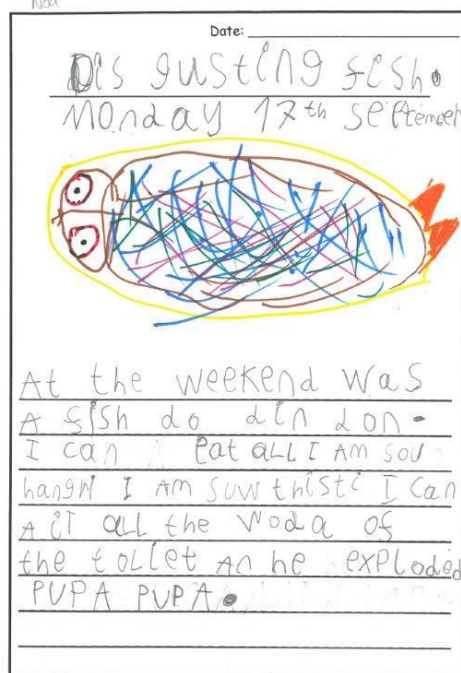 Date:
Disgusting fish.
Monday 17th September
At the weekend was
A fish do din don.
I can eat all I Am sou
hangri I Am suw thisti I can
Ait all the woda of
the toilet An he exploded
PUPA PUPA.